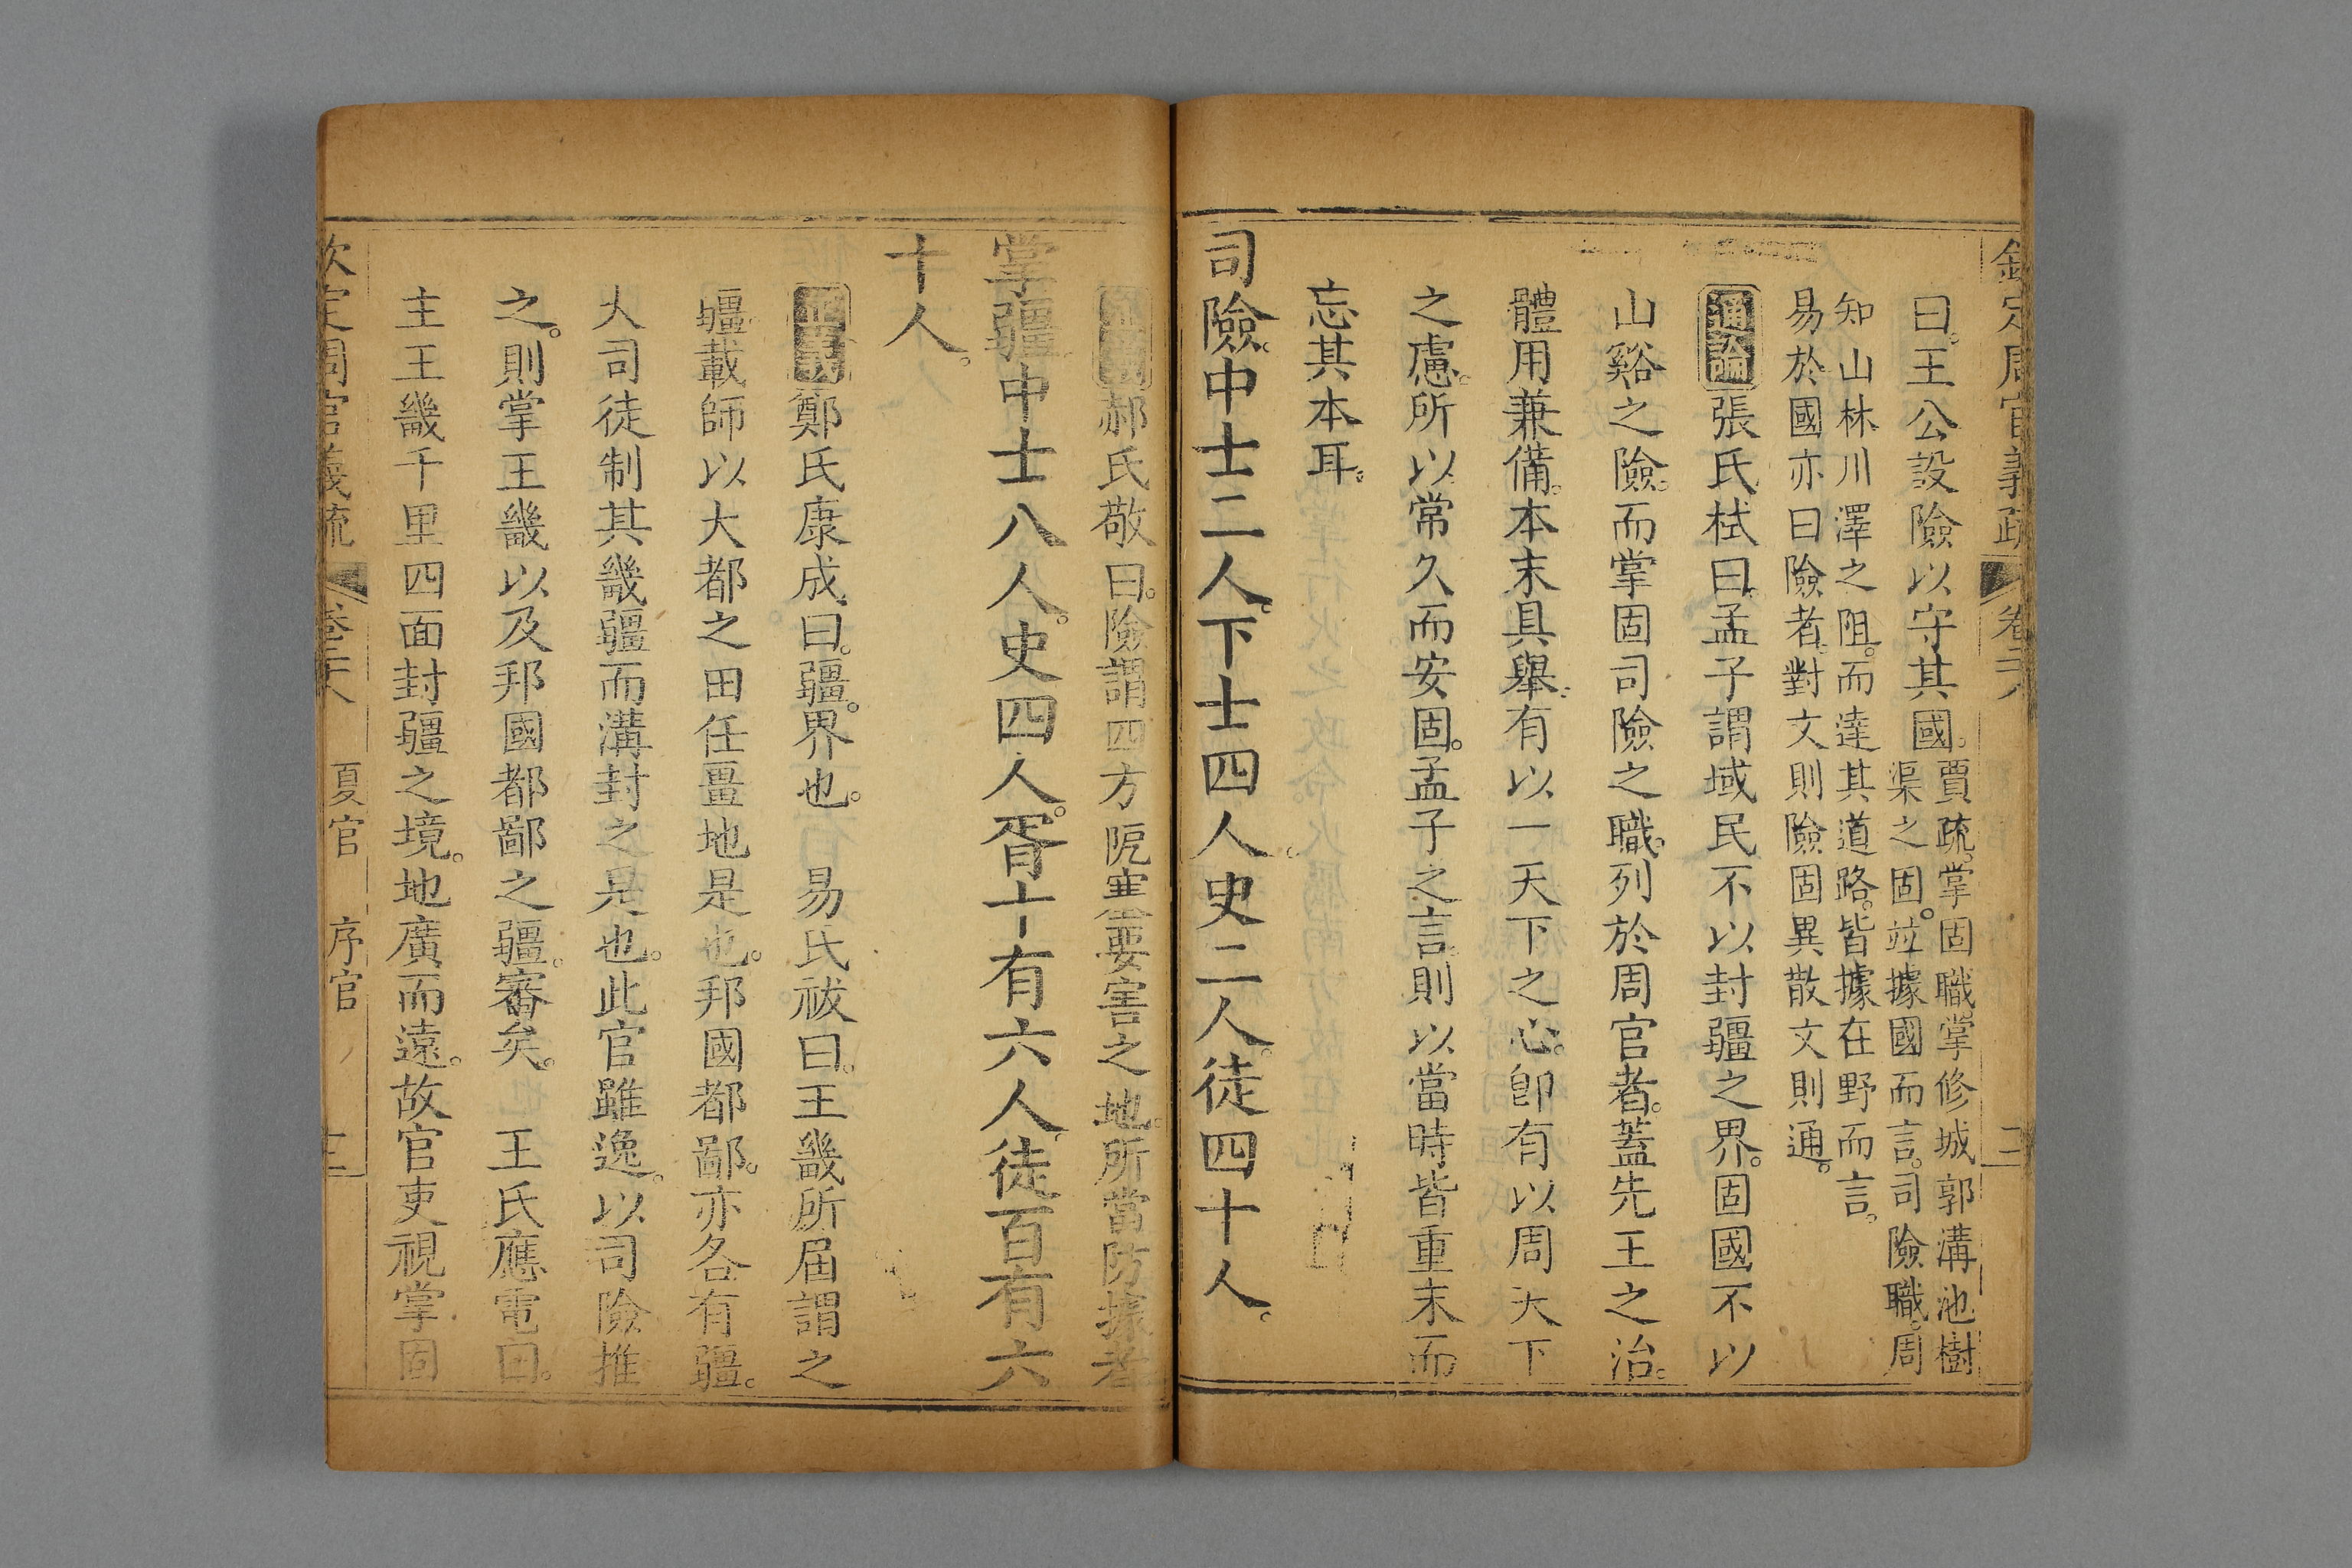 欽定周官義疏 卷二十八 三
曰。王公設險以守其國。賈疏。掌固職。掌修城郭溝池樹
渠之固。並據國而言。司險職。周
知山林川澤之阻。而達其道路。皆據在野而言。
易於國亦曰險者。對文則險固異。散文則通。
通論張氏栻曰。孟子謂域民不以封疆之界。固國不以
山谿之險。而掌固司險之職。列於周官者。蓋先王之治。
體用兼備。本末具舉。有以一天下之心。卽有以周天下
之慮。所以常久而安固。孟子之言。則以當時皆重末而
忘其本耳。
司險。中士二人。下士四人。史二人。徒四十人。
郝氏敬曰。險謂四方阨塞要害之地。所當防據者
掌疆。中士八人。史四人。胥十有六人。徒百有六
十人。
正義鄭氏康成曰。疆。界也。 易氏祓曰。王畿所屆謂之
疆。載師以大都之田任畺地是也。邦國都鄙。亦各有疆。
大司徒制其畿疆而溝封之是也。此官雖逸。以司險推
之。則掌王畿以及邦國都鄙之疆。審矣。 王氏應電曰。
主王畿千里四面封疆之境。地廣而遠。故官吏視掌固
欽定周官義疏 卷二十八 夏官 序官